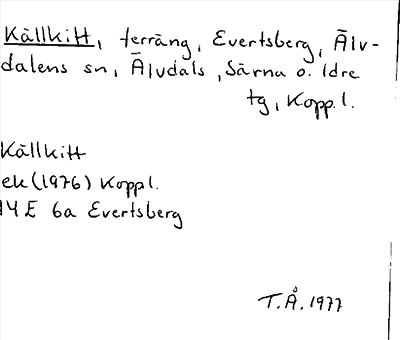 Källkitt, terräng, Evertsberg, Älv-
dalens sn, Älvdals, Särna o. Idre
tg, Kopp.l.
Källkitt
ek (1976) Koppl.
14 E 6a Evertsberg
T.Å. 1977